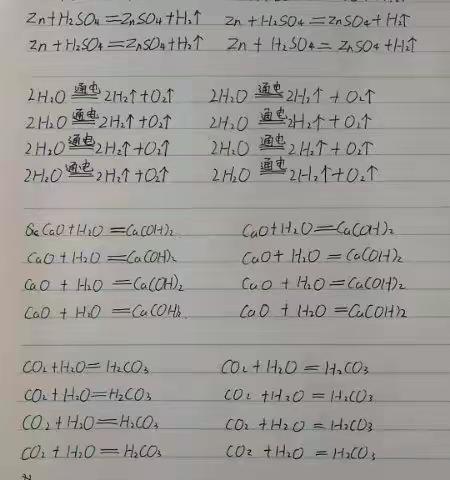 Zn+H₂SO₄=ZnSO₄+H₂↑ Zn+H₂SO₄=ZnSO₄+H₂↑
Zn+H₂SO₄=ZnSO₄+H₂↑ Zn+H₂SO₄=ZnSO₄+H₂↑
2H₂O 通电 2H₂↑+O₂↑ 2H₂O 通电 2H₂↑+O₂↑
2H₂O 通电 2H₂↑+O₂↑ 2H₂O 通电 2H₂↑+O₂↑
2H₂O 通电 2H₂↑+O₂↑ 2H₂O 通电 2H₂↑+O₂↑
2H₂O 通电 2H₂↑+O₂↑ 2H₂O 通电 2H₂↑+O₂↑
CaO+H₂O=Ca(OH)₂ CaO+H₂O=Ca(OH)₂
CaO+H₂O=Ca(OH)₂ CaO+H₂O=Ca(OH)₂
CaO+H₂O=Ca(OH)₂ CaO+H₂O=Ca(OH)₂
CaO+H₂O=Ca(OH)₂ CaO+H₂O=Ca(OH)₂
CO₂+H₂O=H₂CO₃ CO₂+H₂O=H₂CO₃
CO₂+H₂O=H₂CO₃ CO₂+H₂O=H₂CO₃
CO₂+H₂O=H₂CO₃ CO₂+H₂O=H₂CO₃
CO₂+H₂O=H₂CO₃ CO₂+H₂O=H₂CO₃